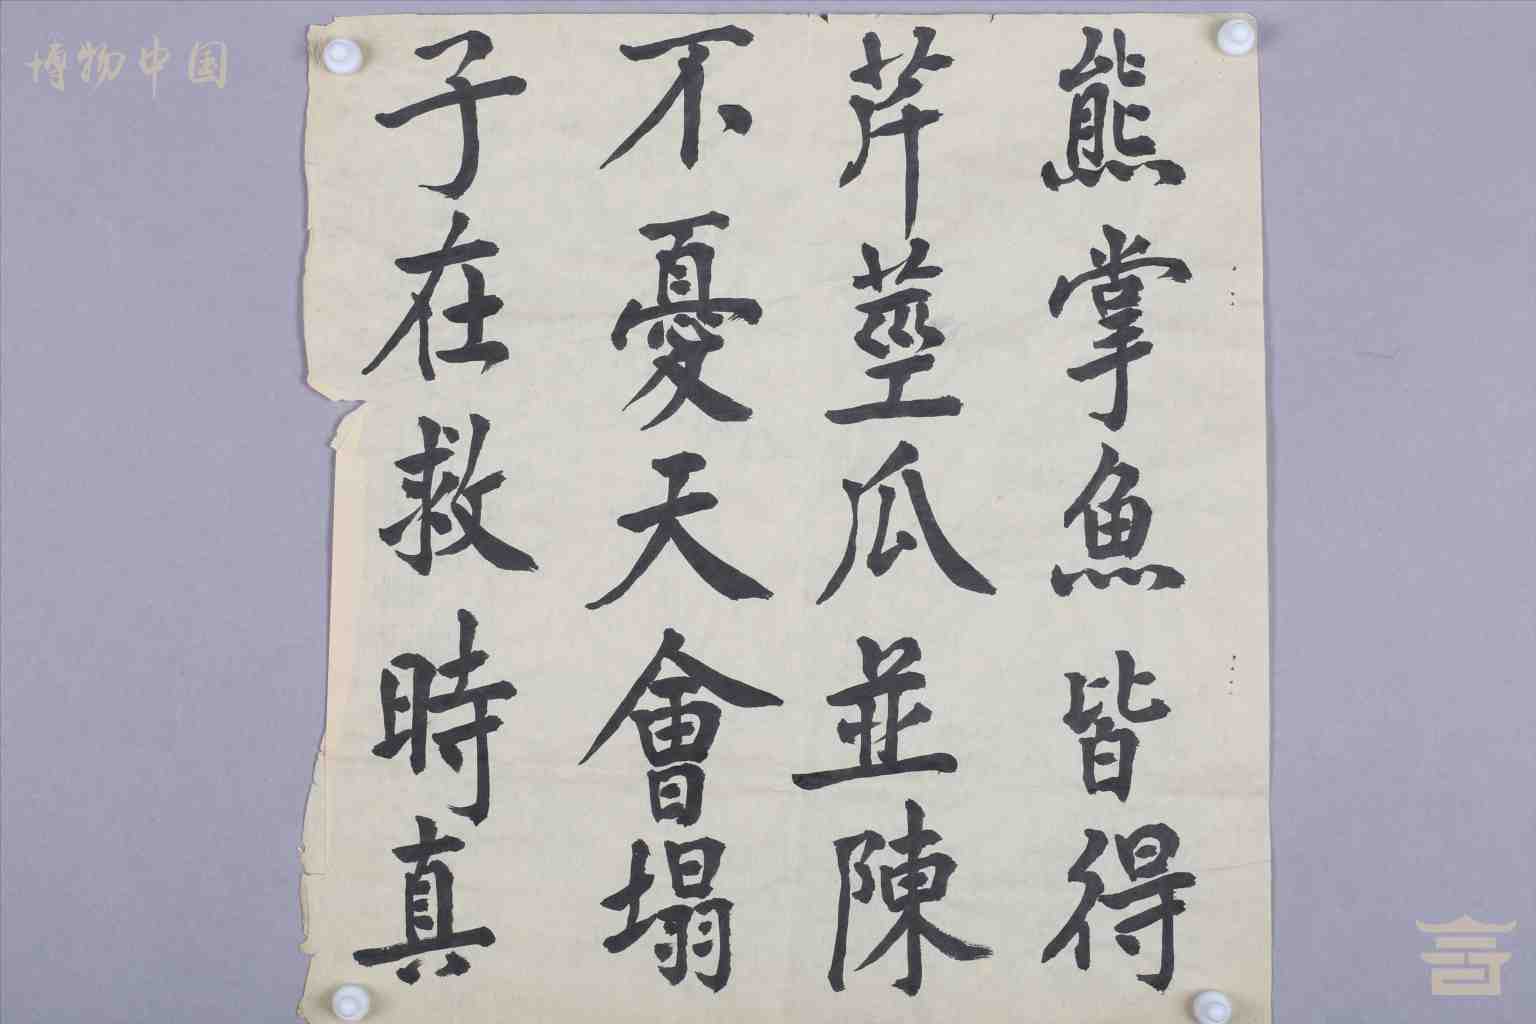 熊掌魚皆得
芹莖瓜並陳
不憂天會塌
子在救時真
博物中国